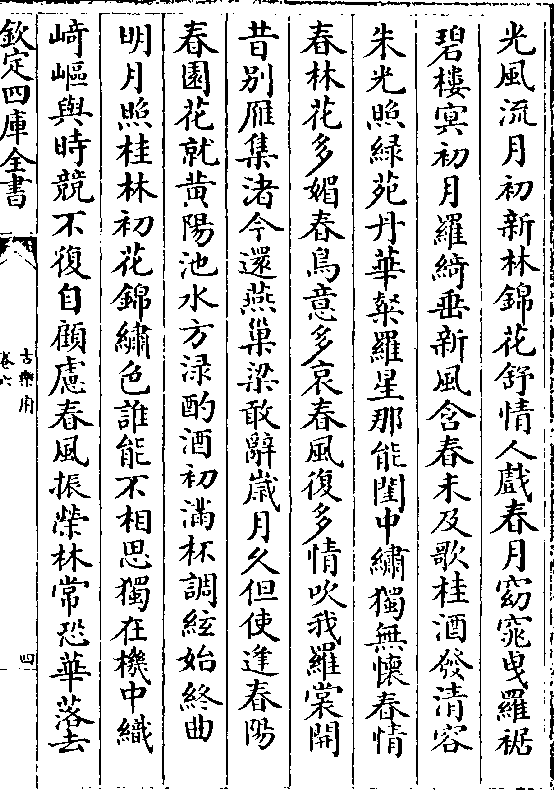 光風流月初新林錦花舒情人戲春月窈窕曳羅裾
碧樓冥初月羅綺垂新風含春未及歌桂酒發清容
朱光照緑苑丹華粲羅星那能閨中繡獨無懐春情
春林花多媚春鳥意多哀春風復多情吹我羅裳開
昔别雁集渚今還燕巢梁敢辭嵗月久但使逢春陽
春園花就黄陽池水方渌酌酒初滿杯調絃始終曲
明月照桂林初花錦繡色誰能不相思獨在機中織
﨑嶇與時競不復自顧慮春風振榮林常恐華落去
欽定四庫全書
古樂府
卷六
四